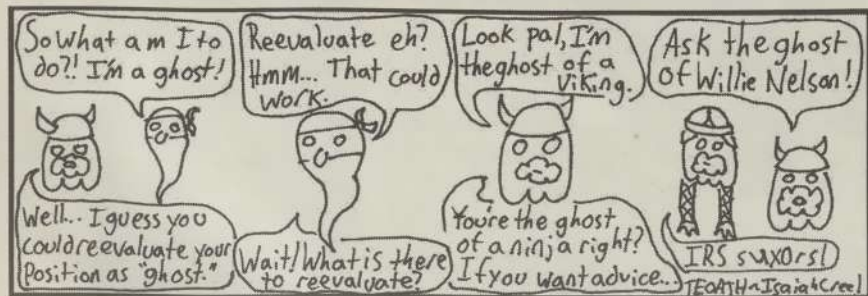 So what am I to
do?! I'm a ghost!
Well... I guess you
could reevaluate your
Position as "ghost."
Reevaluate eh?
Hmm... That could
work.
Wait! What is there
to reevaluate?
Look pal, I'm
the ghost of a
Viking.
You're the ghost
of a ninja right?
If you want advice...
Ask the ghost
of Willie Nelson!
IRS suxors!
TEOATH~Isaiah Creel